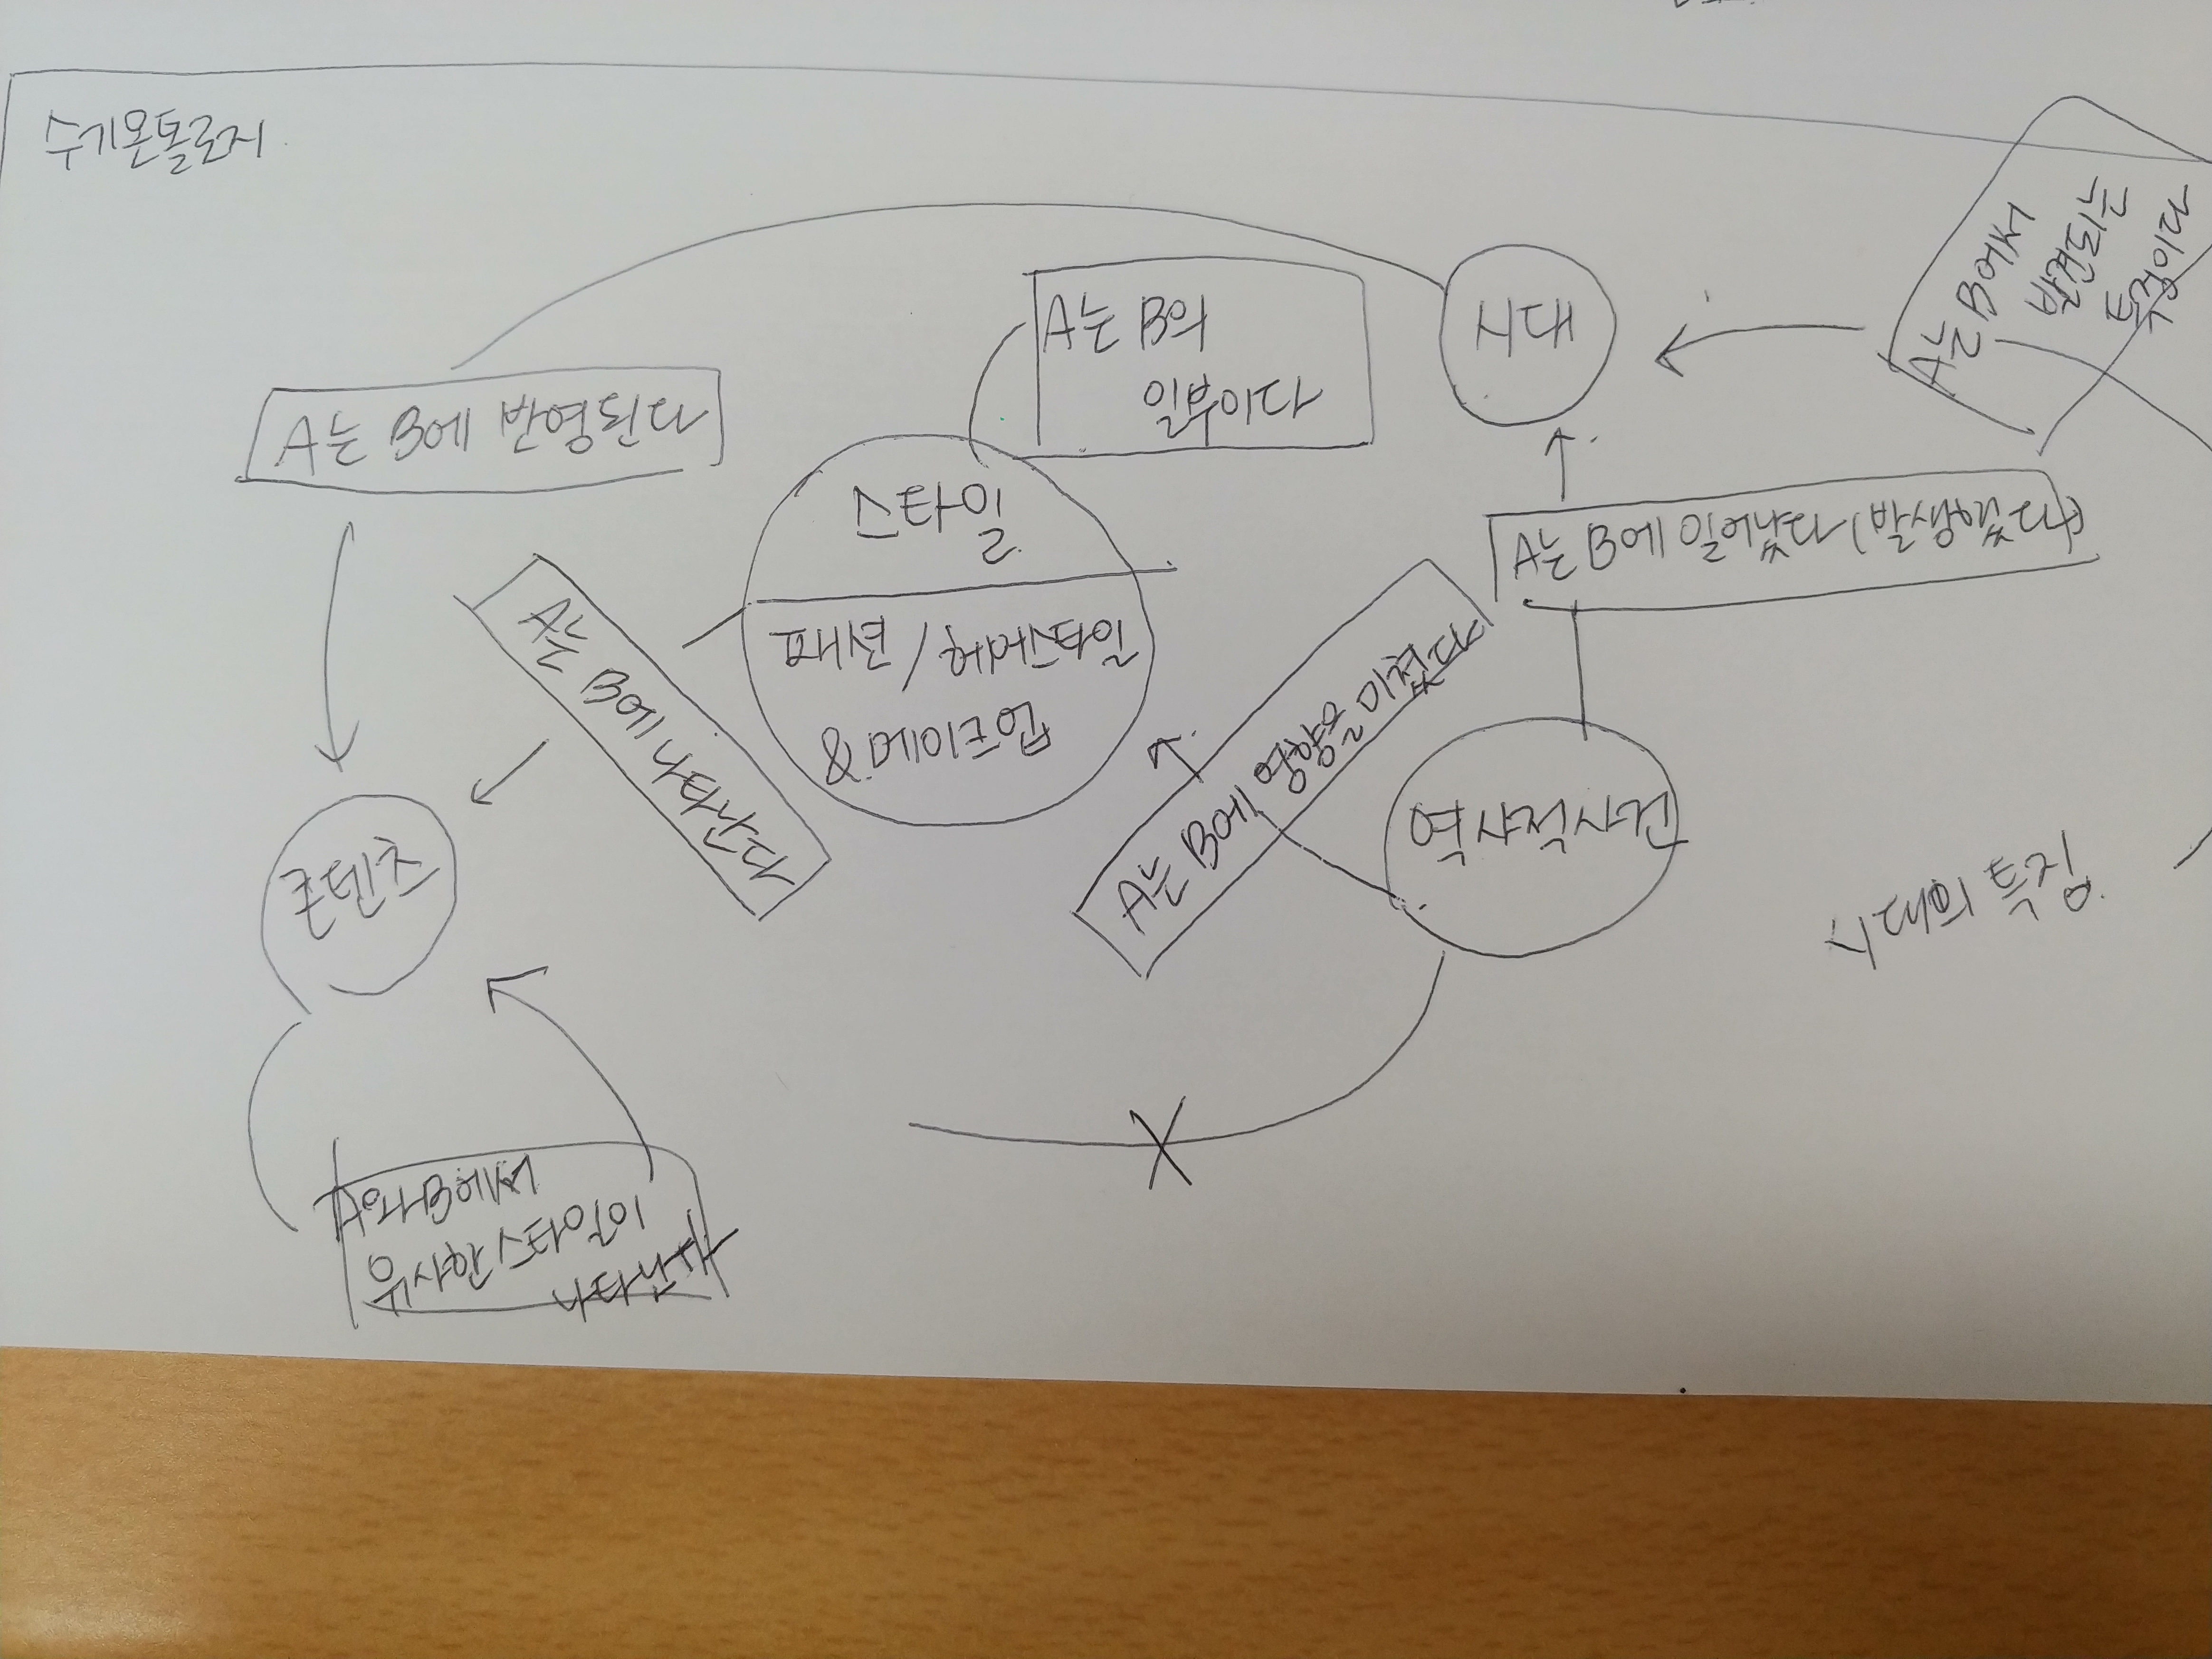 수기온톨로지
A는 B에서
발견되는
특징이다
시대
A는 B의
일부이다
A는 B에 반영된다
스타일
패션/헤어스타일
&
A는 B에 일어났다(발생했다)
A는 B에 나타난다
A는 B에 영향을 미쳤다
역사적사건
콘텐츠
시대의 특징
A와 B에서
유사한 스타일이
나타난다